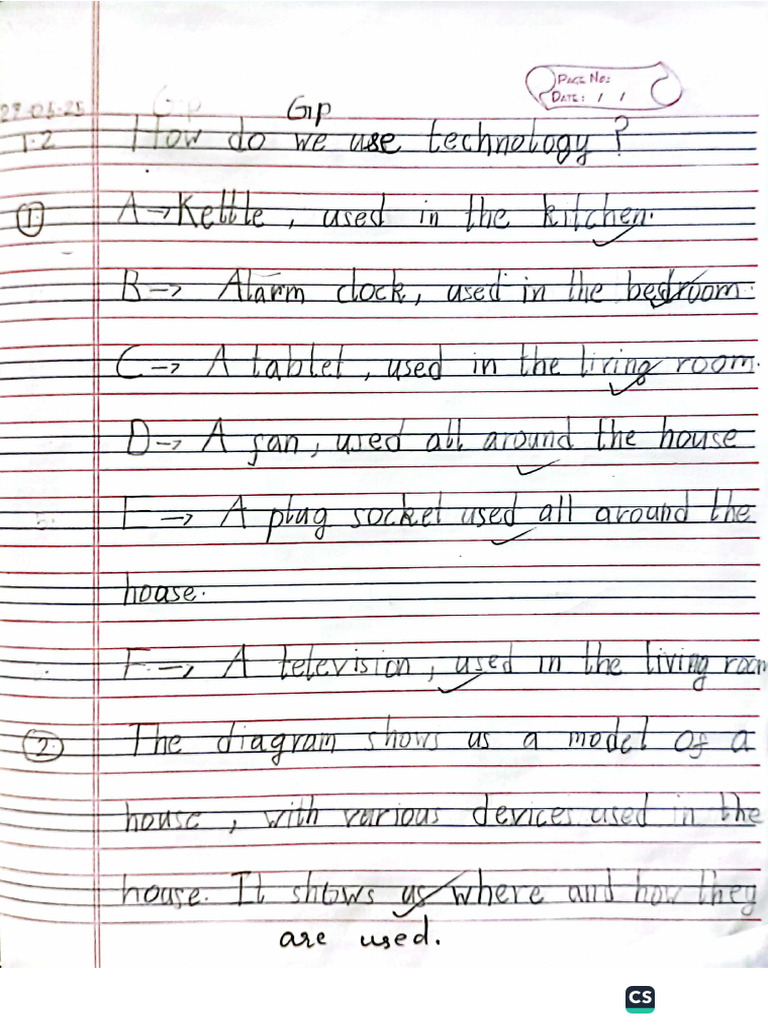 PAGE No:
DATE: / /
Gp
1.2 How do we use technology?
① A → Kettle, used in the kitchen.
B → Alarm clock, used in the bedroom.
C → A tablet, used in the living room.
D → A fan, used all around the house
E → A plug socket used all around the
house.
F → A television, used in the living room
② The diagram shows us a model of a
house, with various devices used in the
house. It shows us where and how they
are used.
CS